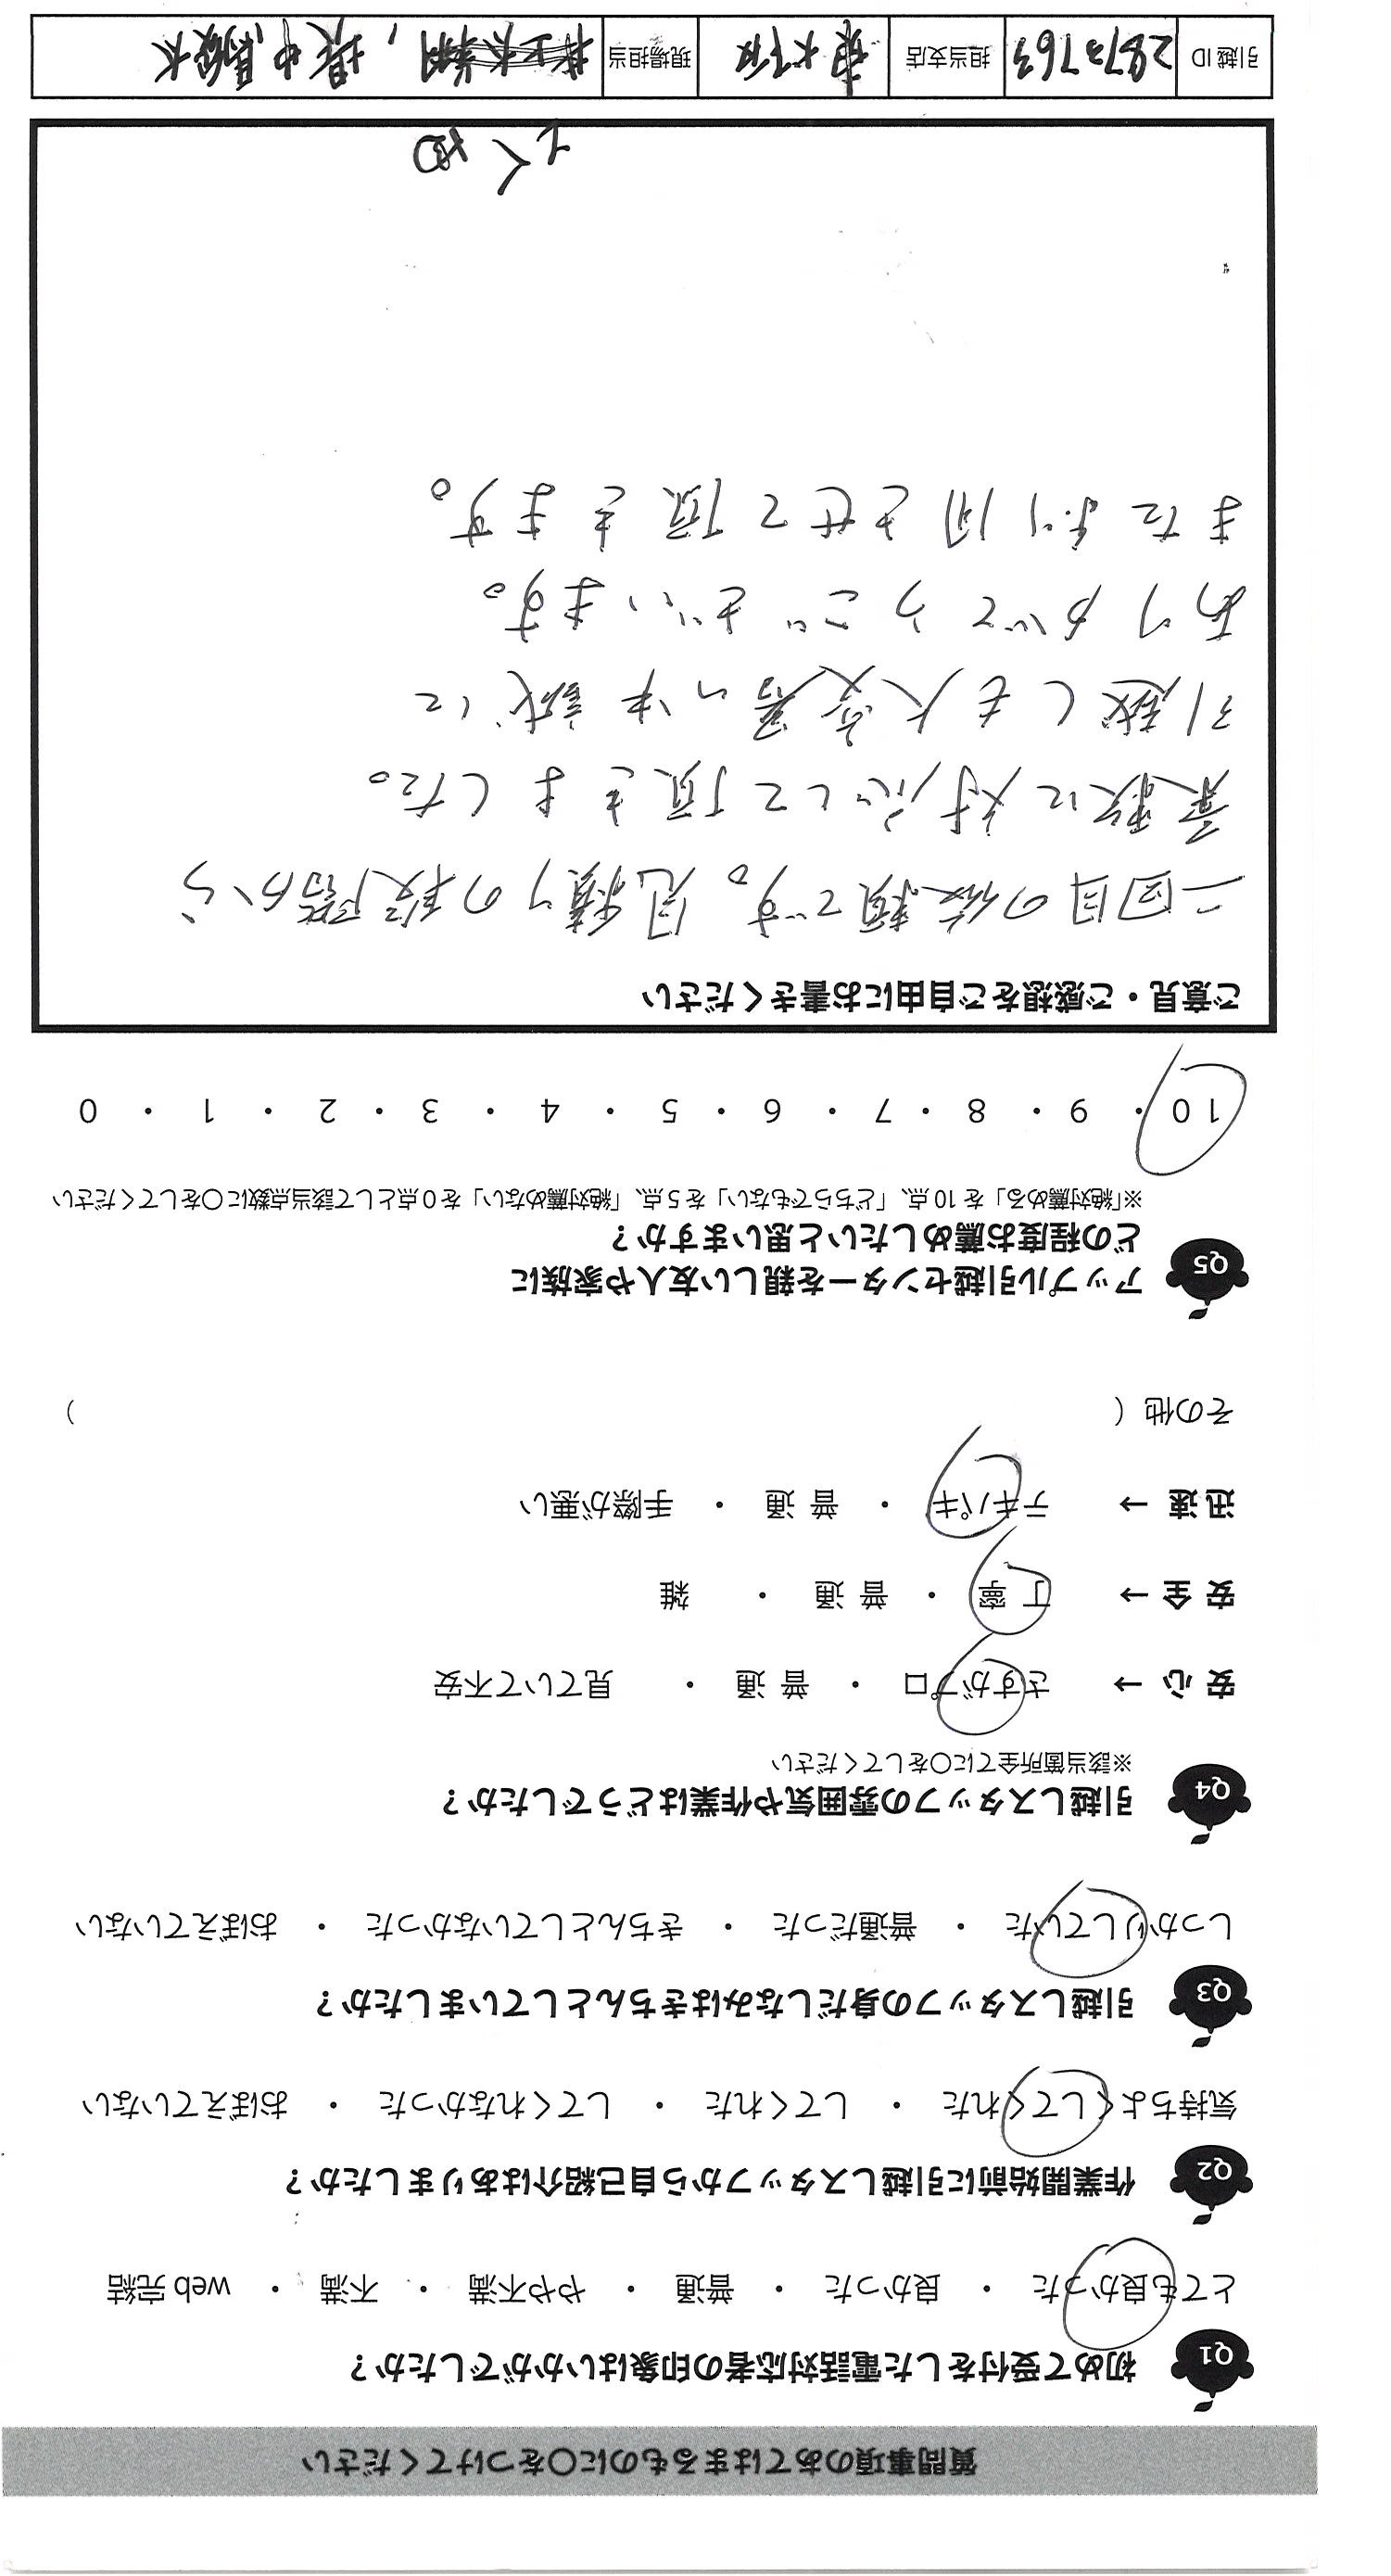 質問事項のあてはまるものに○をつけてください
Q1 初めて受付をした電話対応者の印象はいかがでしたか？
とても良かった ・ 良かった ・ 普通 ・ やや不満 ・ 不満 ・ web 完結
Q2 作業開始前に引越しスタッフから自己紹介はありましたか？
気持ちよくしてくれた ・ してくれた ・ してくれなかった ・ おぼえていない
Q3 引越しスタッフの身だしなみはきちんとしていましたか？
しっかりしていた ・ 普通だった ・ きちんとしていなかった ・ おぼえていない
Q4 引越しスタッフの雰囲気や作業はどうでしたか？
※該当箇所全てに○をしてください
安 心 → さすがプロ ・ 普 通 ・ 見ていて不安
安 全 → 丁 寧 ・ 普 通 ・ 雑
迅 速 → テキパキ ・ 普 通 ・ 手際が悪い
その他（ ）
Q5 アップル引越センターを親しい友人や家族に
どの程度お薦めしたいと思いますか？
※「絶対薦める」を 10 点、「どちらでもない」を 5 点、「絶対薦めない」を 0 点として該当点数に○をしてください
10 ・ 9 ・ 8 ・ 7 ・ 6 ・ 5 ・ 4 ・ 3 ・ 2 ・ 1 ・ 0
ご意見・ご感想をご自由にお書きください
二回目の依頼です。見積りの段階から
柔軟に対応して頂きました。
引越しも大変暑い中 誠に
ありがとうございます。
また利用させて頂きます。
引越 ID 2873763 担当支店 東大阪 現場担当